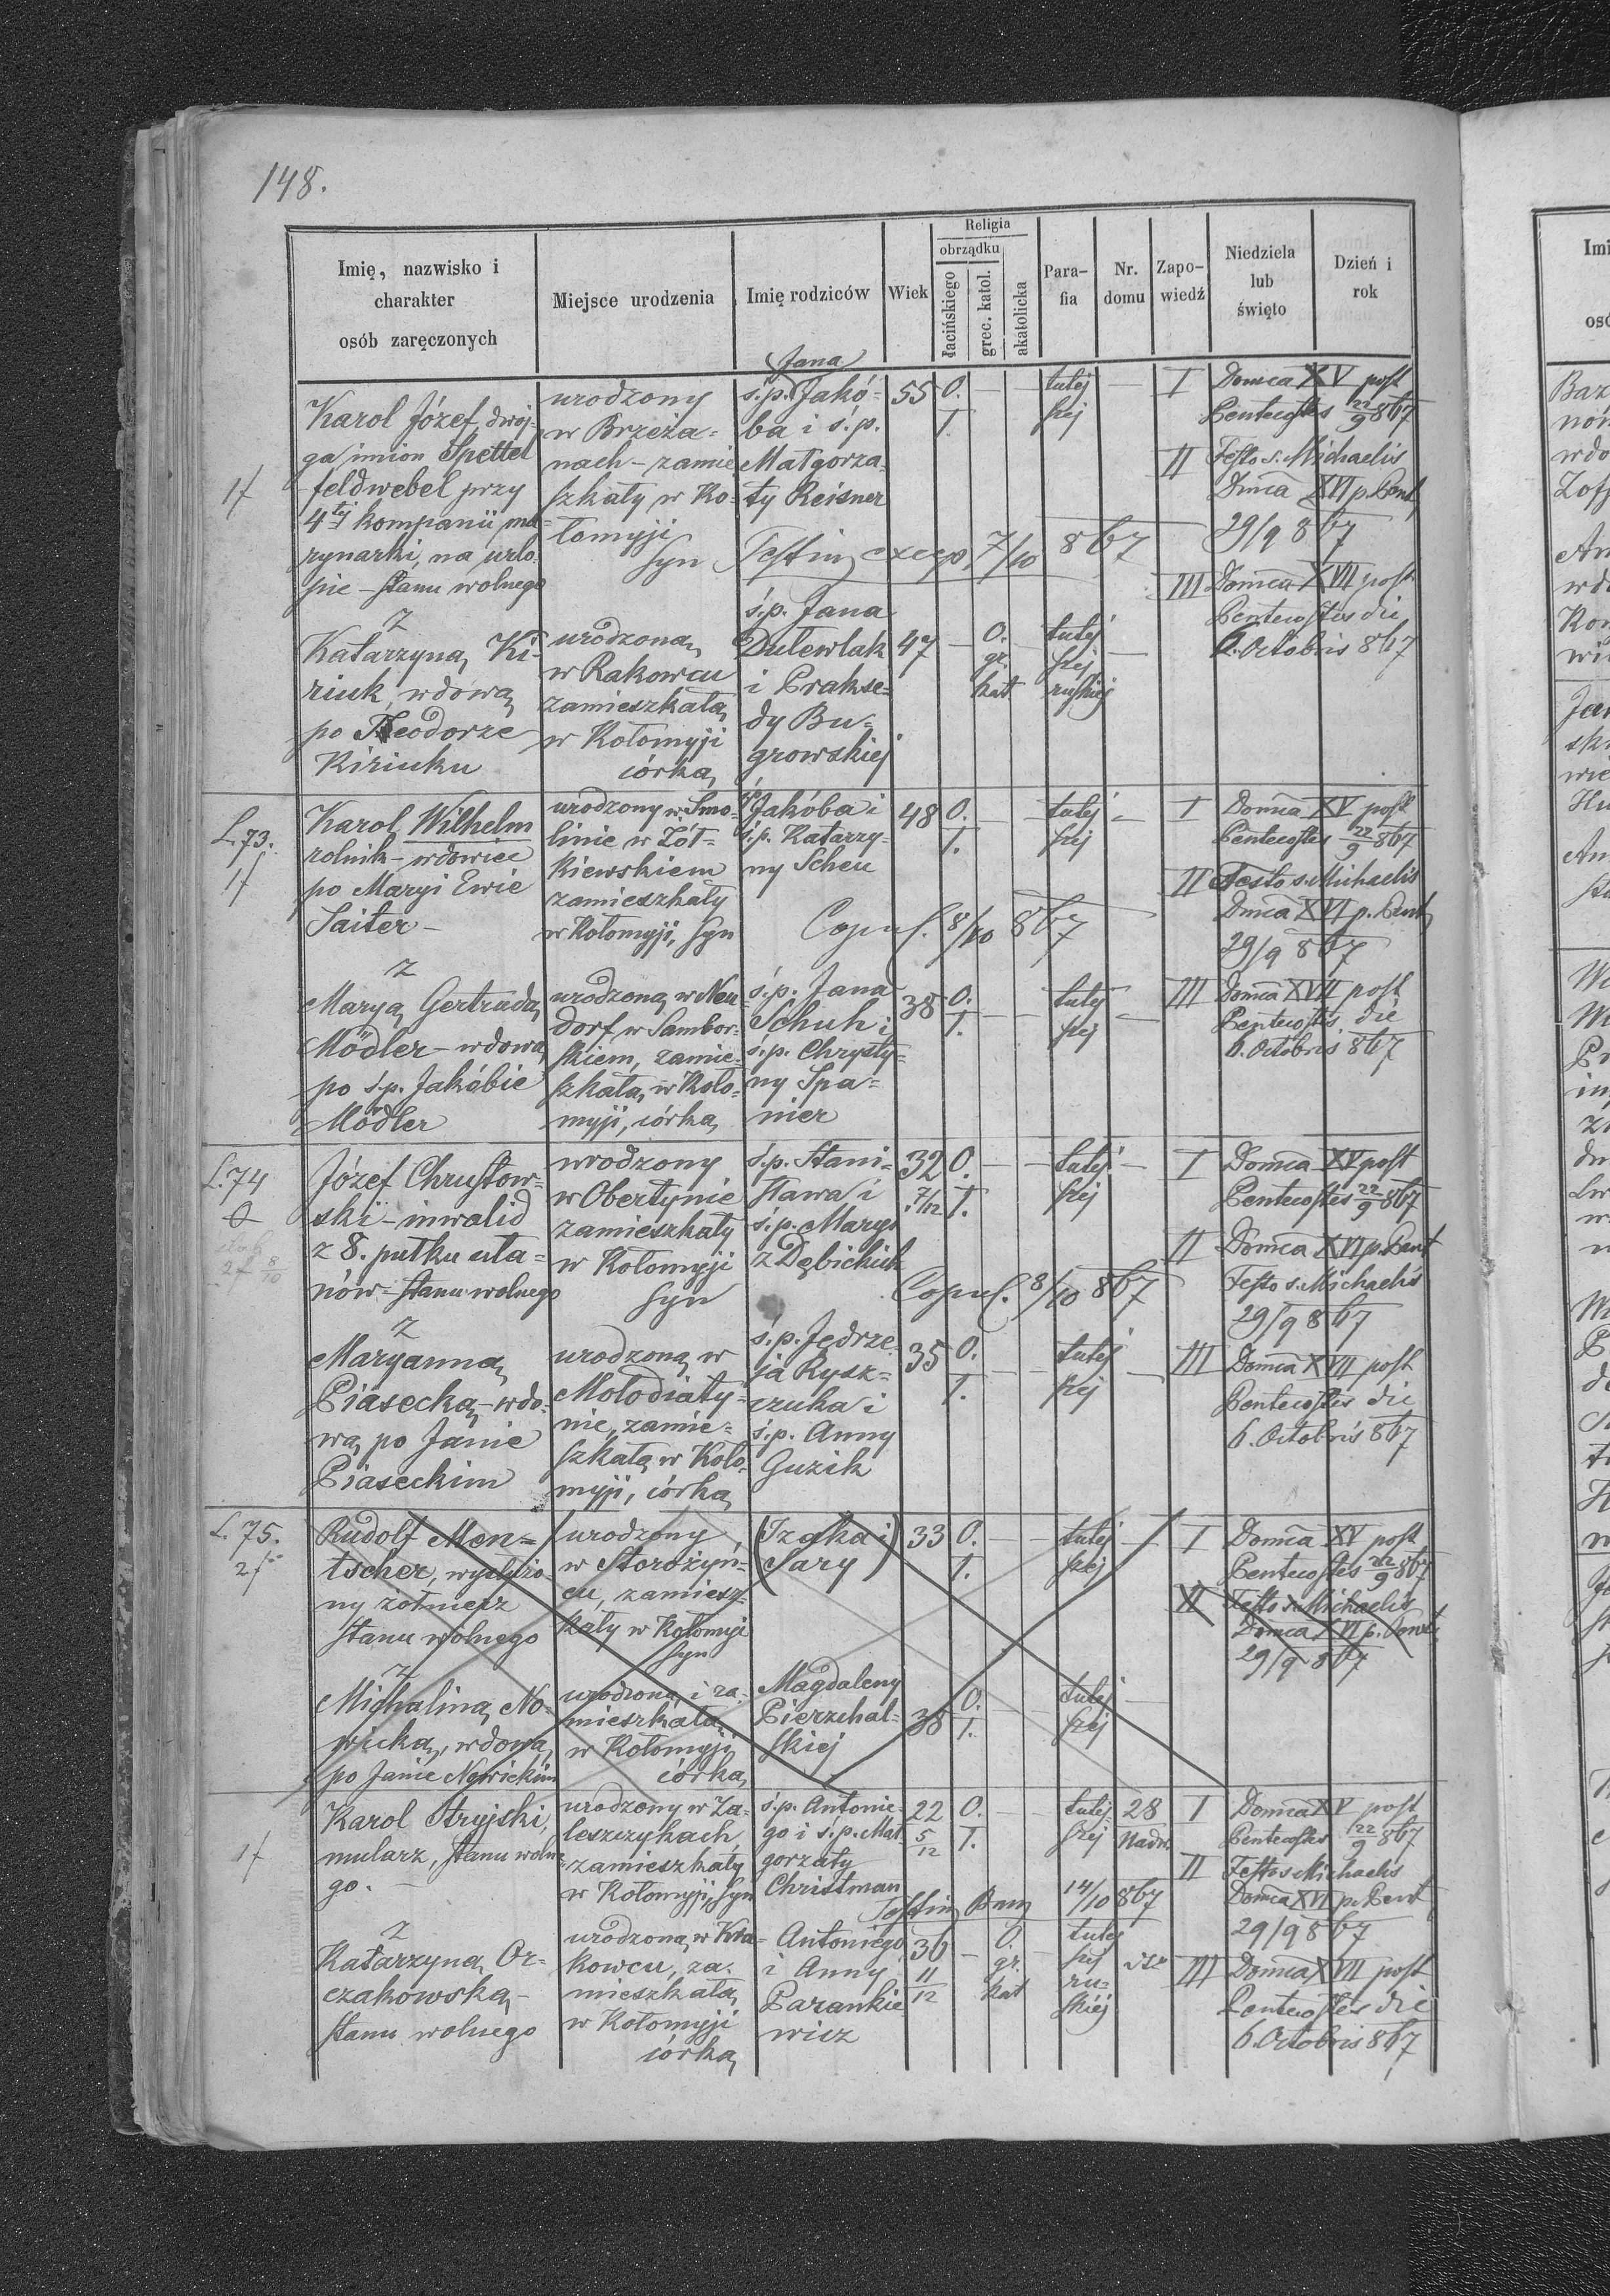 148.
Imię, nazwisko i charakter osób zaręczonych
Miejsce urodzenia
Imię rodziców
Wiek
Religia
obrządku
łacińskiego
grec. katol.
akatolicka
Para-fia
Nr. domu
Zapo-wiedź
Niedziela lub święto
Dzień i rok
1f
Karol Józef dwój-
ga imion Spettel
feldwebel przy
4tej kompanii ma-
rynarki, na urlo-
pie - stanu wolnego
urodzony
w Brzeża-
nach - zamie
szkały w Ko-
łomyji
syn
Jana
ś.p. Jakó-
ba i ś.p.
Małgorza-
ty Reisner
55 O. — — tutej — 
ł. szej
Testim excep 7/10 867
I Domca XV post
Pentecostes 22/9 867
II Festo s. Michaelis
Dmca XVI p. Pent
29/9 867
III Domca XVII post
Pentecostes die
6. Octobris 867
z
Katarzyna Ki-
riuk, wdowa
po Theodorze
Kiriuku
urodzona
w Rakowcu
zamieszkała
w Kołomyji
córka
ś.p. Jana
Dutewlak
i Prakse-
dy Bu-
growskiej
47 — O. tutej —
gr. szej
kat ruskiej
L.73.
1f
Karol Wilhelm
rolnik - wdowiec
po Maryi Ewie
Saiter -
urodzony w Smo-
linie w Żół-
kiewskiem
zamieszkały
w Kołomyji, syn
Jakóba i
ś.p. Katarzy-
ny Scheu
48 O. — — tutej —
ł. szej
Copul. 8/10 867
I Domca XV post
Pentecostes 22/9 867
II Festo s. Michaelis
Dmca XVI p. Pent
29/9 867
III Domca XVII post
Pentecostes die
6. Octobris 867
z
Marya Gertruda
Mödler - wdowa
po ś.p. Jakóbie
Mödler
urodzona w Neu-
dorf w Sambor-
skiem, zamie-
szkała w Koło-
myji, córka
ś.p. Jana
Schuh i
ś.p. Chrysty-
ny Spa-
nier
38 O. — — tutej —
ł. szej
L.74
Józef Chrustow-
ski - inwalid
z 8. pułku uła-
nów - stanu wolnego
urodzony
w Obertynie
zamieszkały
w Kołomyji
syn
ś.p. Stani-
sława i
ś.p. Maryi
z Dębickich
32 O. — — tutej —
7/12 ł. szej
Copul. 8/10 867
I Domca XV post
Pentecostes 22/9 867
II Domca XVI p. Pent
Festo s. Michaelis
29/9 867
III Domca XVII post
Pentecostes die
6. Octobris 867
z
Maryanna
Piasecka - wdo-
wa po Janie
Piaseckim
urodzona w
Mołodiaty-
nie, zamie-
szkała w Koło-
myji, córka
ś.p. Jędrze-
ja Rysz-
czuka i
ś.p. Anny
Guzik
35 O. — — tutej —
ł. szej
L.75.
Rudolf Men-
tscher, wysłużo-
ny żołnierz
stanu wolnego
urodzony
w Storożyń-
cu, zamiesz-
kały w Kołomyji
syn
(Izaka i
Sary)
33 O. — — tutej —
ł. szej
I Domca XV post
Pentecostes 22/9 867
II Festo s. Michaelis
Domca XVI p. Pent.
29/9 867
z
Michalina No-
wicka, wdowa
po Janie Nowickim
urodzona i za-
mieszkała
w Kołomyji
córka
Magdaleny
Pierzchal-
skiej
38 O. tutej —
ł. szej
1f
Karol Stryjski,
mularz, stanu wolne-
go. —
urodzony w Za-
leszczykach
zamieszkały
w Kołomyji, syn
ś.p. Antonie-
go i ś.p. Mał
gorzaty
Christman
22 O. — — tutej 28
5/12 ł. szej Nadw.
Testim 14/10 867
I Domca XV post
Pentecostes 22/9 867
II Festo s Michaelis
Domca XVI p. Pent
29/9 867
III Domca XVII post
Pentecostes die
6. Octobris 867
z
Katarzyna Or-
czakowska -
stanu wolnego
urodzona w Kra-
kowcu, za-
mieszkała
w Kołomyji
córka
Antoniego
i Anny
Parankie-
wicz
36 — O. — tutej
11/12 gr. szej
kat ru-
skiej